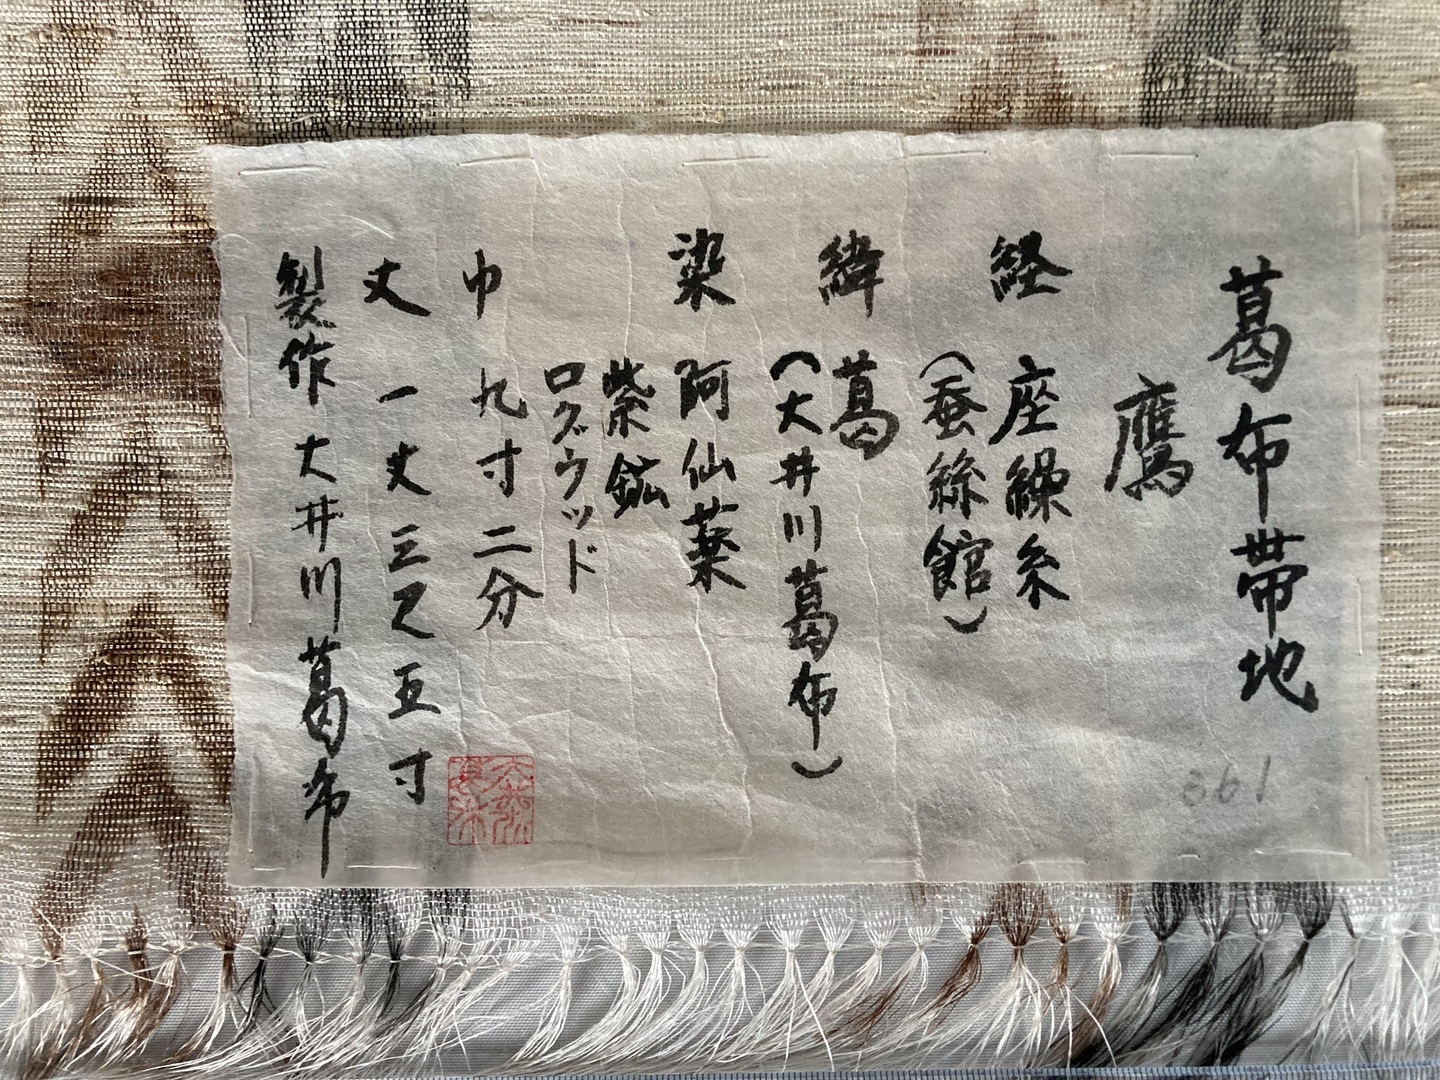 葛布帯地
鷹
経 座繰糸
（蚕絲館）
緯 葛
（大井川葛布）
染 阿仙薬
紫鉱
ログウッド
巾 九寸二分
丈 一丈三尺五寸
製作 大井川葛布
361